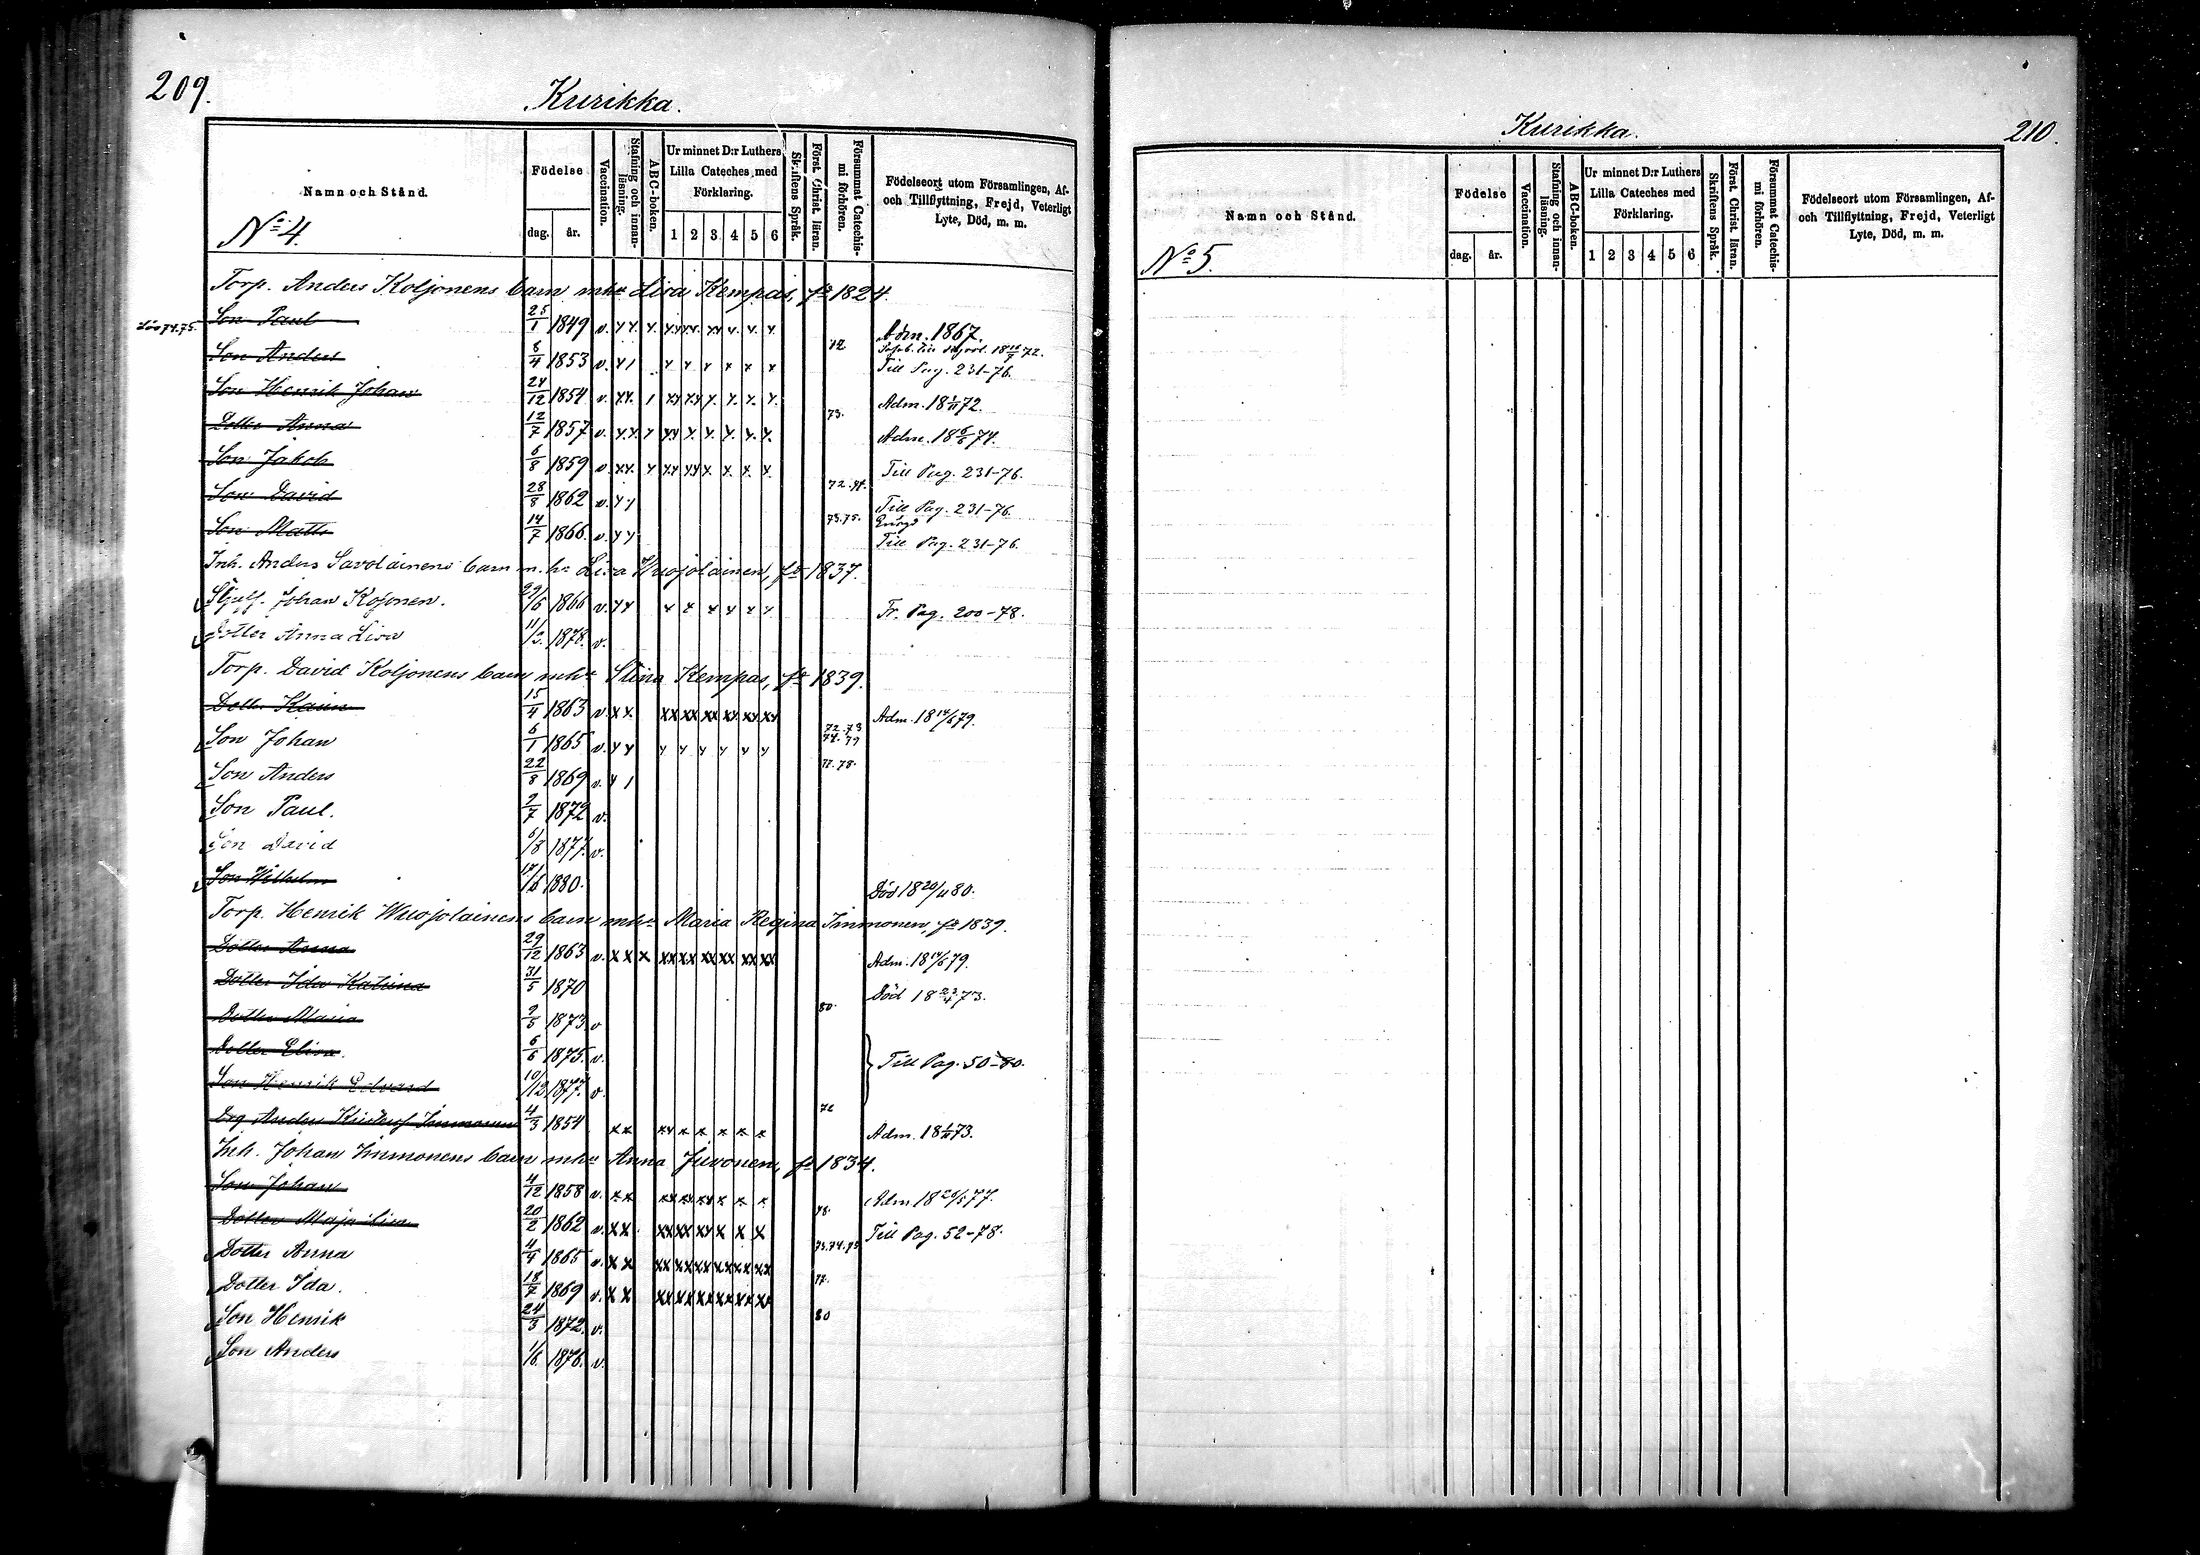 209.
Kurikka.
Namn och Stånd.
Födelse
dag.
år.
Vaccination.
Stafning och innanläsning.
ABC-boken.
Ur minnet D:r Luthers Lilla Cateches med Förklaring.
1 2 3 4 5 6
Skriftens Språk.
Först. Christ. läran.
Försummat Catechismi förhören.
Födelseort utom Församlingen, Af- och Tillflyttning, Frejd, Veterligt Lyte, Död, m. m.
No 4.
Torp. Anders Koljonens barn mhu Lisa Kempas, fd 1824.
Son Paul 25/1 1849 v. Adm. 1867.
Son Anders 8/4 1853 v. 72 Till Pag. 231-76.
Son Henrik Johan 24/12 1854 v. Adm. 18 1/11 72.
Dotter Anna 12/7 1857 v. 73. Adm. 18 6/6 74.
Son Jakob 6/8 1859 v. Till Pag. 231-76.
Son David 28/8 1862 v. 72. Till Pag. 231-76.
Son Matts 14/7 1866 v. 73.75. Till Pag. 231-76.
Inh. Anders Savolainens barn m. hu Lisa Wuojolainen, fd 1837.
Styfs. Johan Kojonen. 29/6 1866 v. Fr. Pag. 200-78.
Dotter Anna Lisa 11/2. 1878. v.
Torp. David Koljonens barn mhu Stina Kempas, fd 1839.
Dotter Karin 15/4 1863 v. Adm. 18 14/6 79.
Son Johan 6/1 1865 v. 72.73 74.77
Son Anders 22/8 1869 v. 77.78.
Son Paul. 9/7 1872 v.
Son David 5/8 1877. v.
Son Wilhelm 17/6 1880. Död 18 20/11 80.
Torp. Henrik Wuojolainens barn mhu Maria Regina Immonen, fd 1839.
Dotter Anna 29/12 1863 v. Adm. 18 14/6 79.
Dotter Ida Katrina 31/5 1870 Död 18 23/4 73.
Dotter Maria 9/5 1873 v 80.
Dotter Elisa. 6/6 1875. v.
Till Pag. 50-80.
Son Henrik Edvard 10/12 1877. v.
Anders Kristof Immonen 4/3 1854 72 Adm. 18 1/11 73.
Inh. Johan Immonens barn mhu Anna Juvonen, fd 1834.
Son Johan 4/12 1858 v. Adm 18 20/5 77.
Dotter Maja Lisa 20/2 1862 v. 78. Till Pag. 52-78.
Dotter Anna 4/4 1865 v. 73.74.75
Dotter Ida. 18/7 1869 v. 77.
Son Henrik 24/3 1872. v. 80
Son Anders 1/6. 1876. v.
Kurikka.
210.
Namn och Stånd.
Födelse
dag.
år.
Vaccination.
Stafning och innanläsning.
ABC-boken.
Ur minnet D:r Luthers Lilla Cateches med Förklaring.
1 2 3 4 5 6
Skriftens Språk.
Först. Christ. läran.
Försummat Catechismi förhören.
Födelseort utom Församlingen, Af- och Tillflyttning, Frejd, Veterligt Lyte, Död, m. m.
No 5.